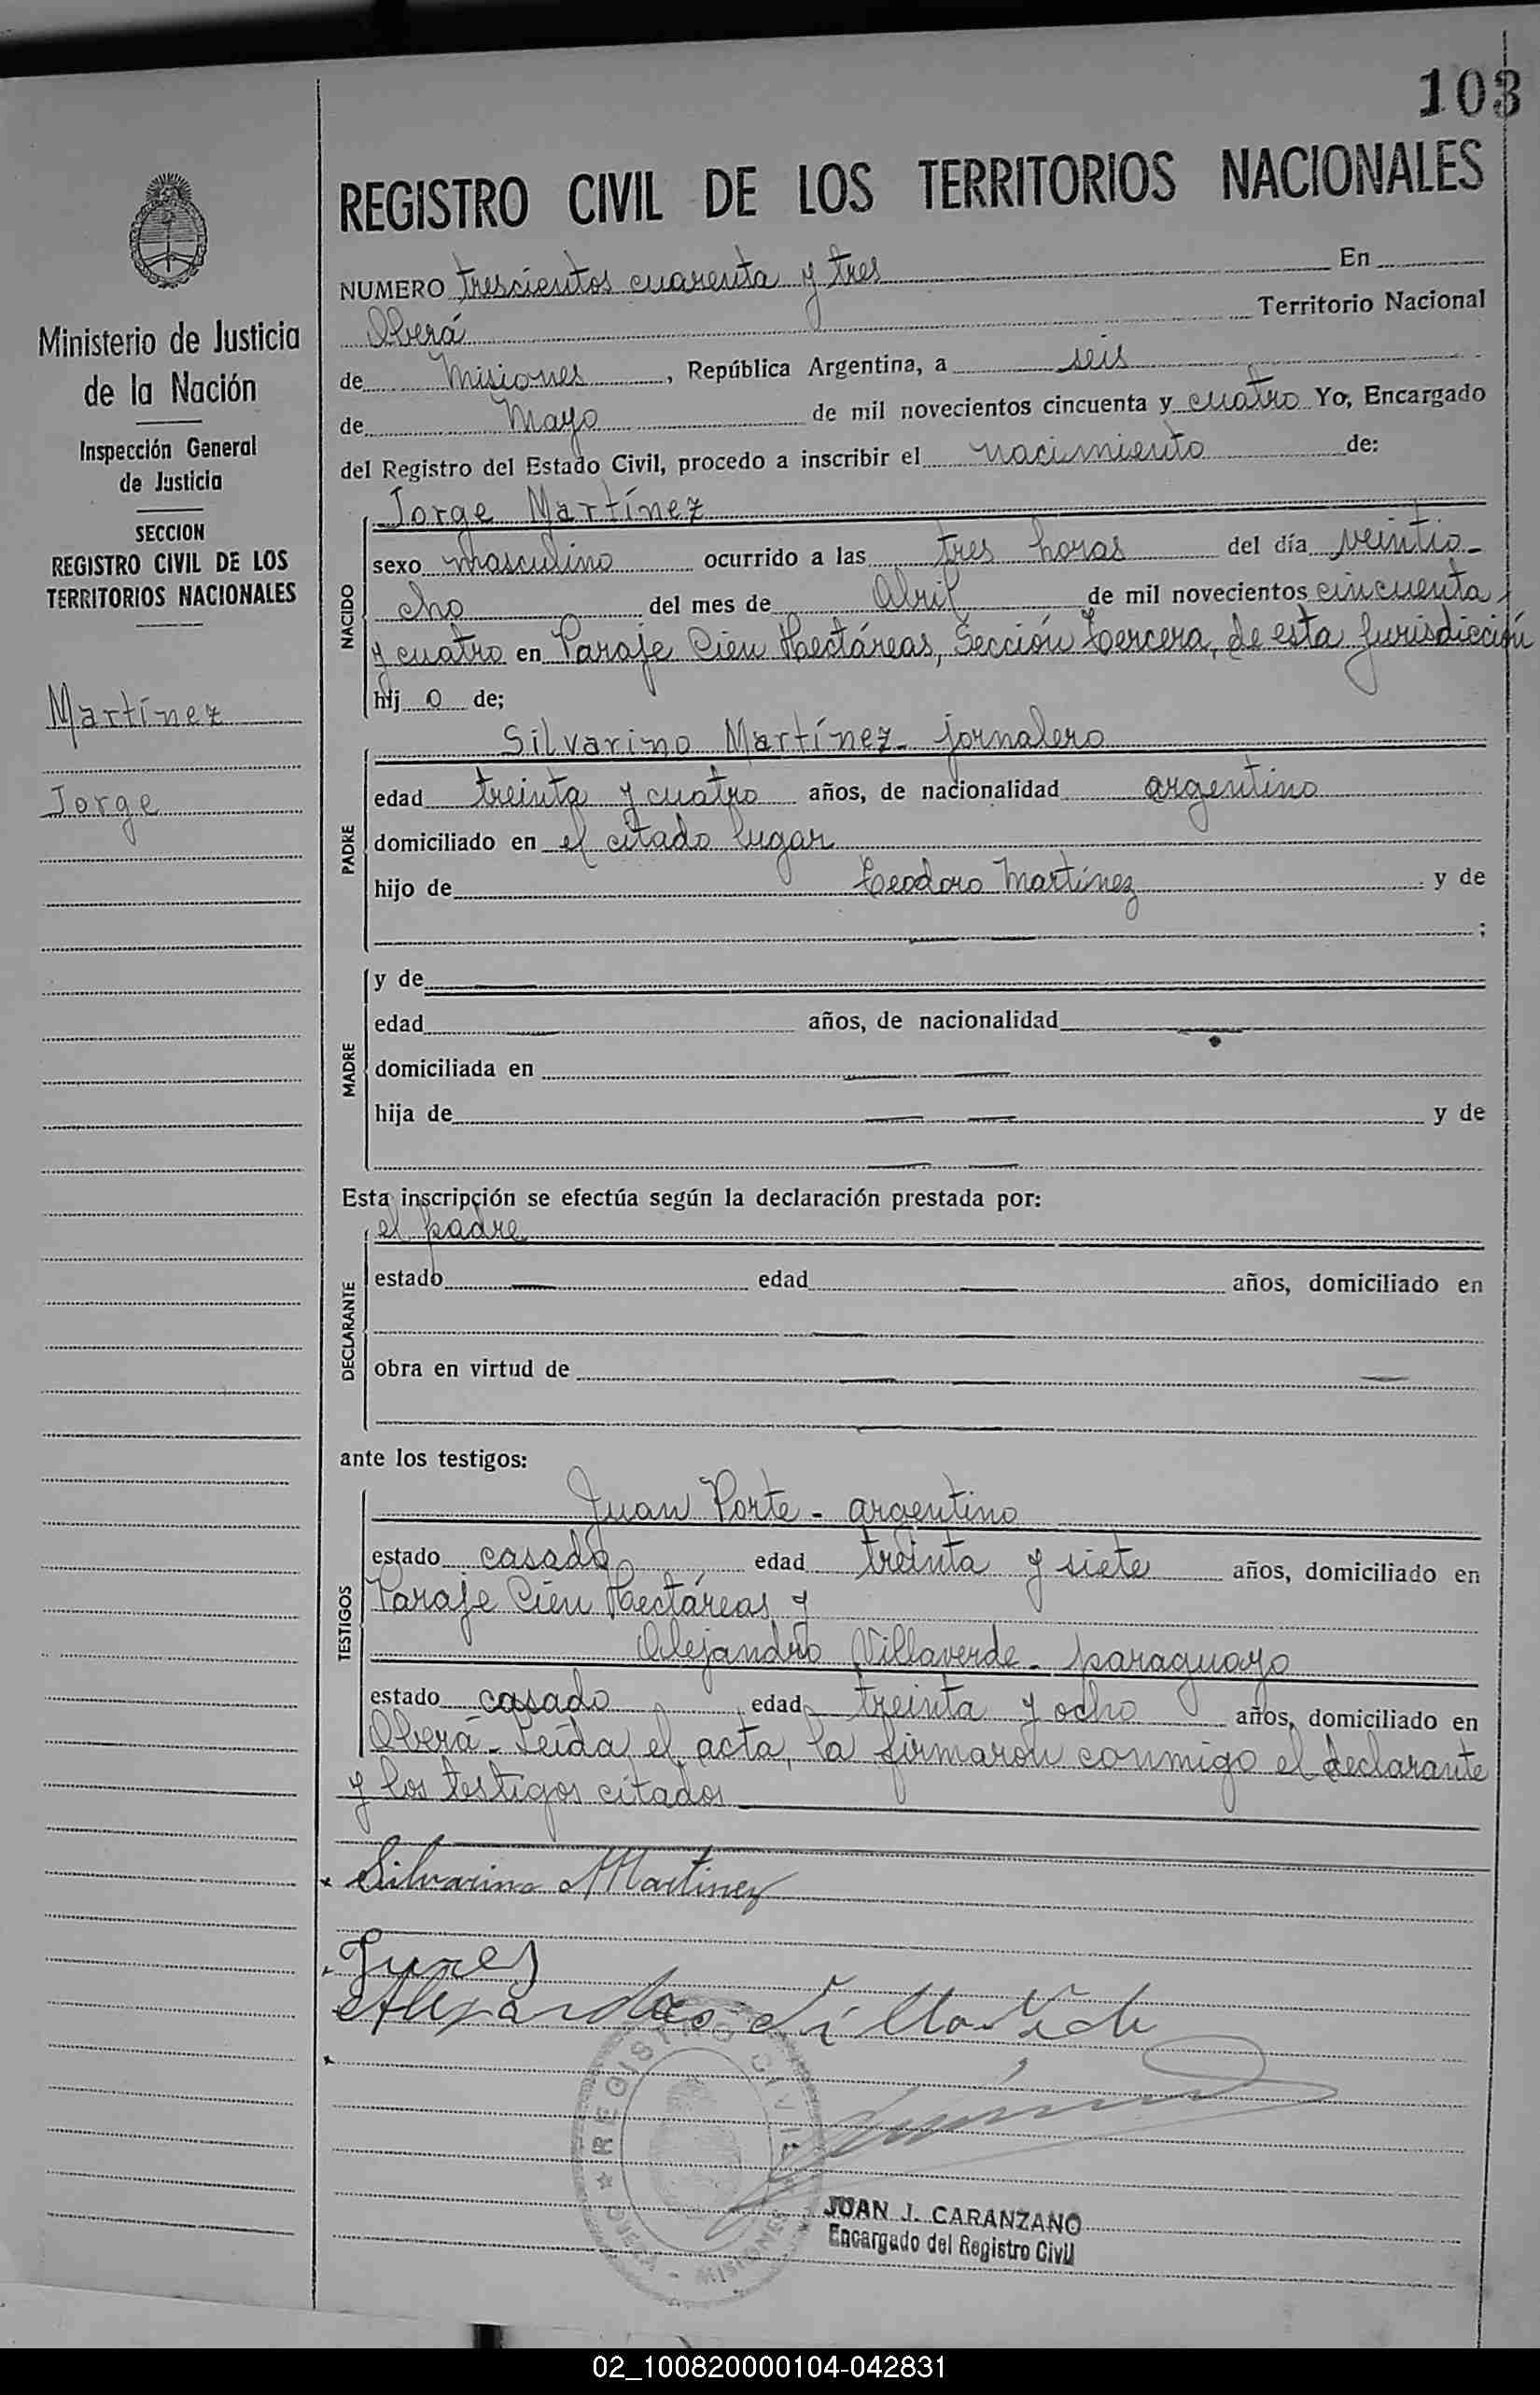 103
REGISTRO CIVIL DE LOS TERRITORIOS NACIONALES
Ministerio de Justicia
de la Nación
Inspección General
de Justicia
SECCION
REGISTRO CIVIL DE LOS
TERRITORIOS NACIONALES
Martínez
Jorge
NUMERO trescientos cuarenta y tres En
Oberá Territorio Nacional
de Misiones, República Argentina, a seis
de Mayo de mil novecientos cincuenta y cuatro Yo, Encargado
del Registro del Estado Civil, procedo a inscribir el nacimiento de:
NACIDO
Jorge Martínez
sexo masculino ocurrido a las tres horas del día veintio-
cho del mes de Abril de mil novecientos cincuenta
y cuatro en Paraje Cien Hectáreas, Sección tercera, de esta Jurisdicción
hij o de;
PADRE
Silvarino Martínez - jornalero
edad treinta y cuatro años, de nacionalidad argentino
domiciliado en el citado lugar
hijo de Teodoro Martínez y de
;
MADRE
y de
edad años, de nacionalidad
domiciliada en
hija de y de
Esta inscripción se efectúa según la declaración prestada por:
DECLARANTE
el padre
estado edad años, domiciliado en
obra en virtud de
ante los testigos:
TESTIGOS
Juan Porte - argentino
estado casado edad treinta y siete años, domiciliado en
Paraje Cien Hectáreas y
Alejandro Villaverde - paraguayo
estado casado edad treinta y ocho años, domiciliado en
Oberá - Leída el acta, la firmaron conmigo el declarante
y los testigos citados
Silvarino Martinez
REGISTRO CIVIL
OBERA - MISIONES
JUAN J. CARANZANO
Encargado del Registro Civil
02_100820000104-042831